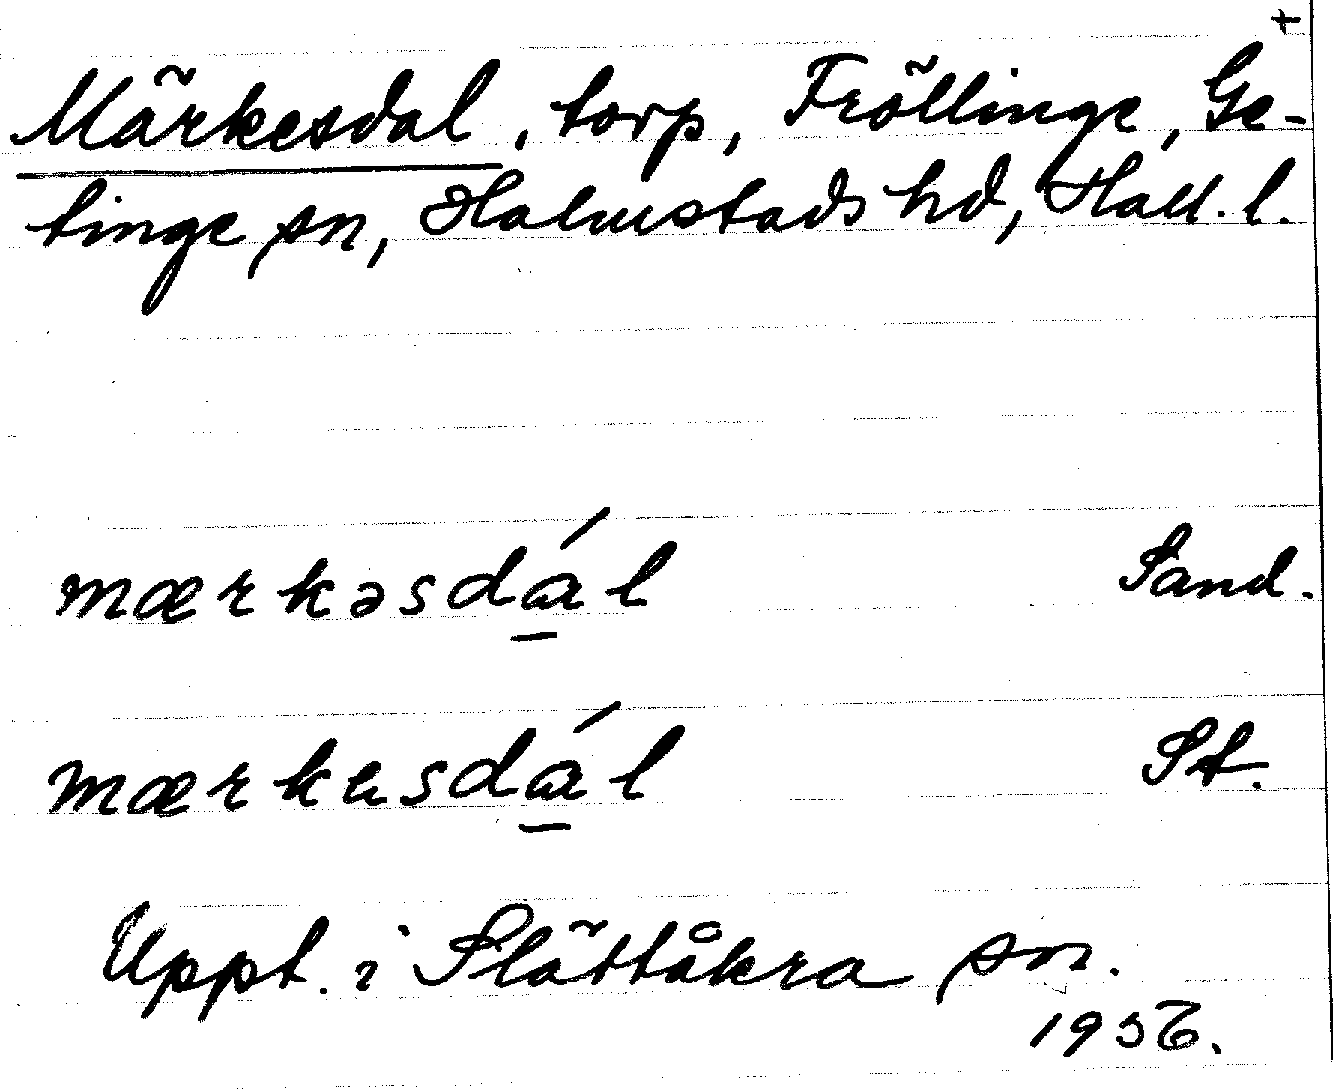 +
Märkesdal, torp, Fröllinge, Ge-
tinge sn, Halmstads hd, Hall. l.
mærkəsdά̱l Sand.
mærkasdά̱l St.
Uppt. i Slättåkra sn.
1956.